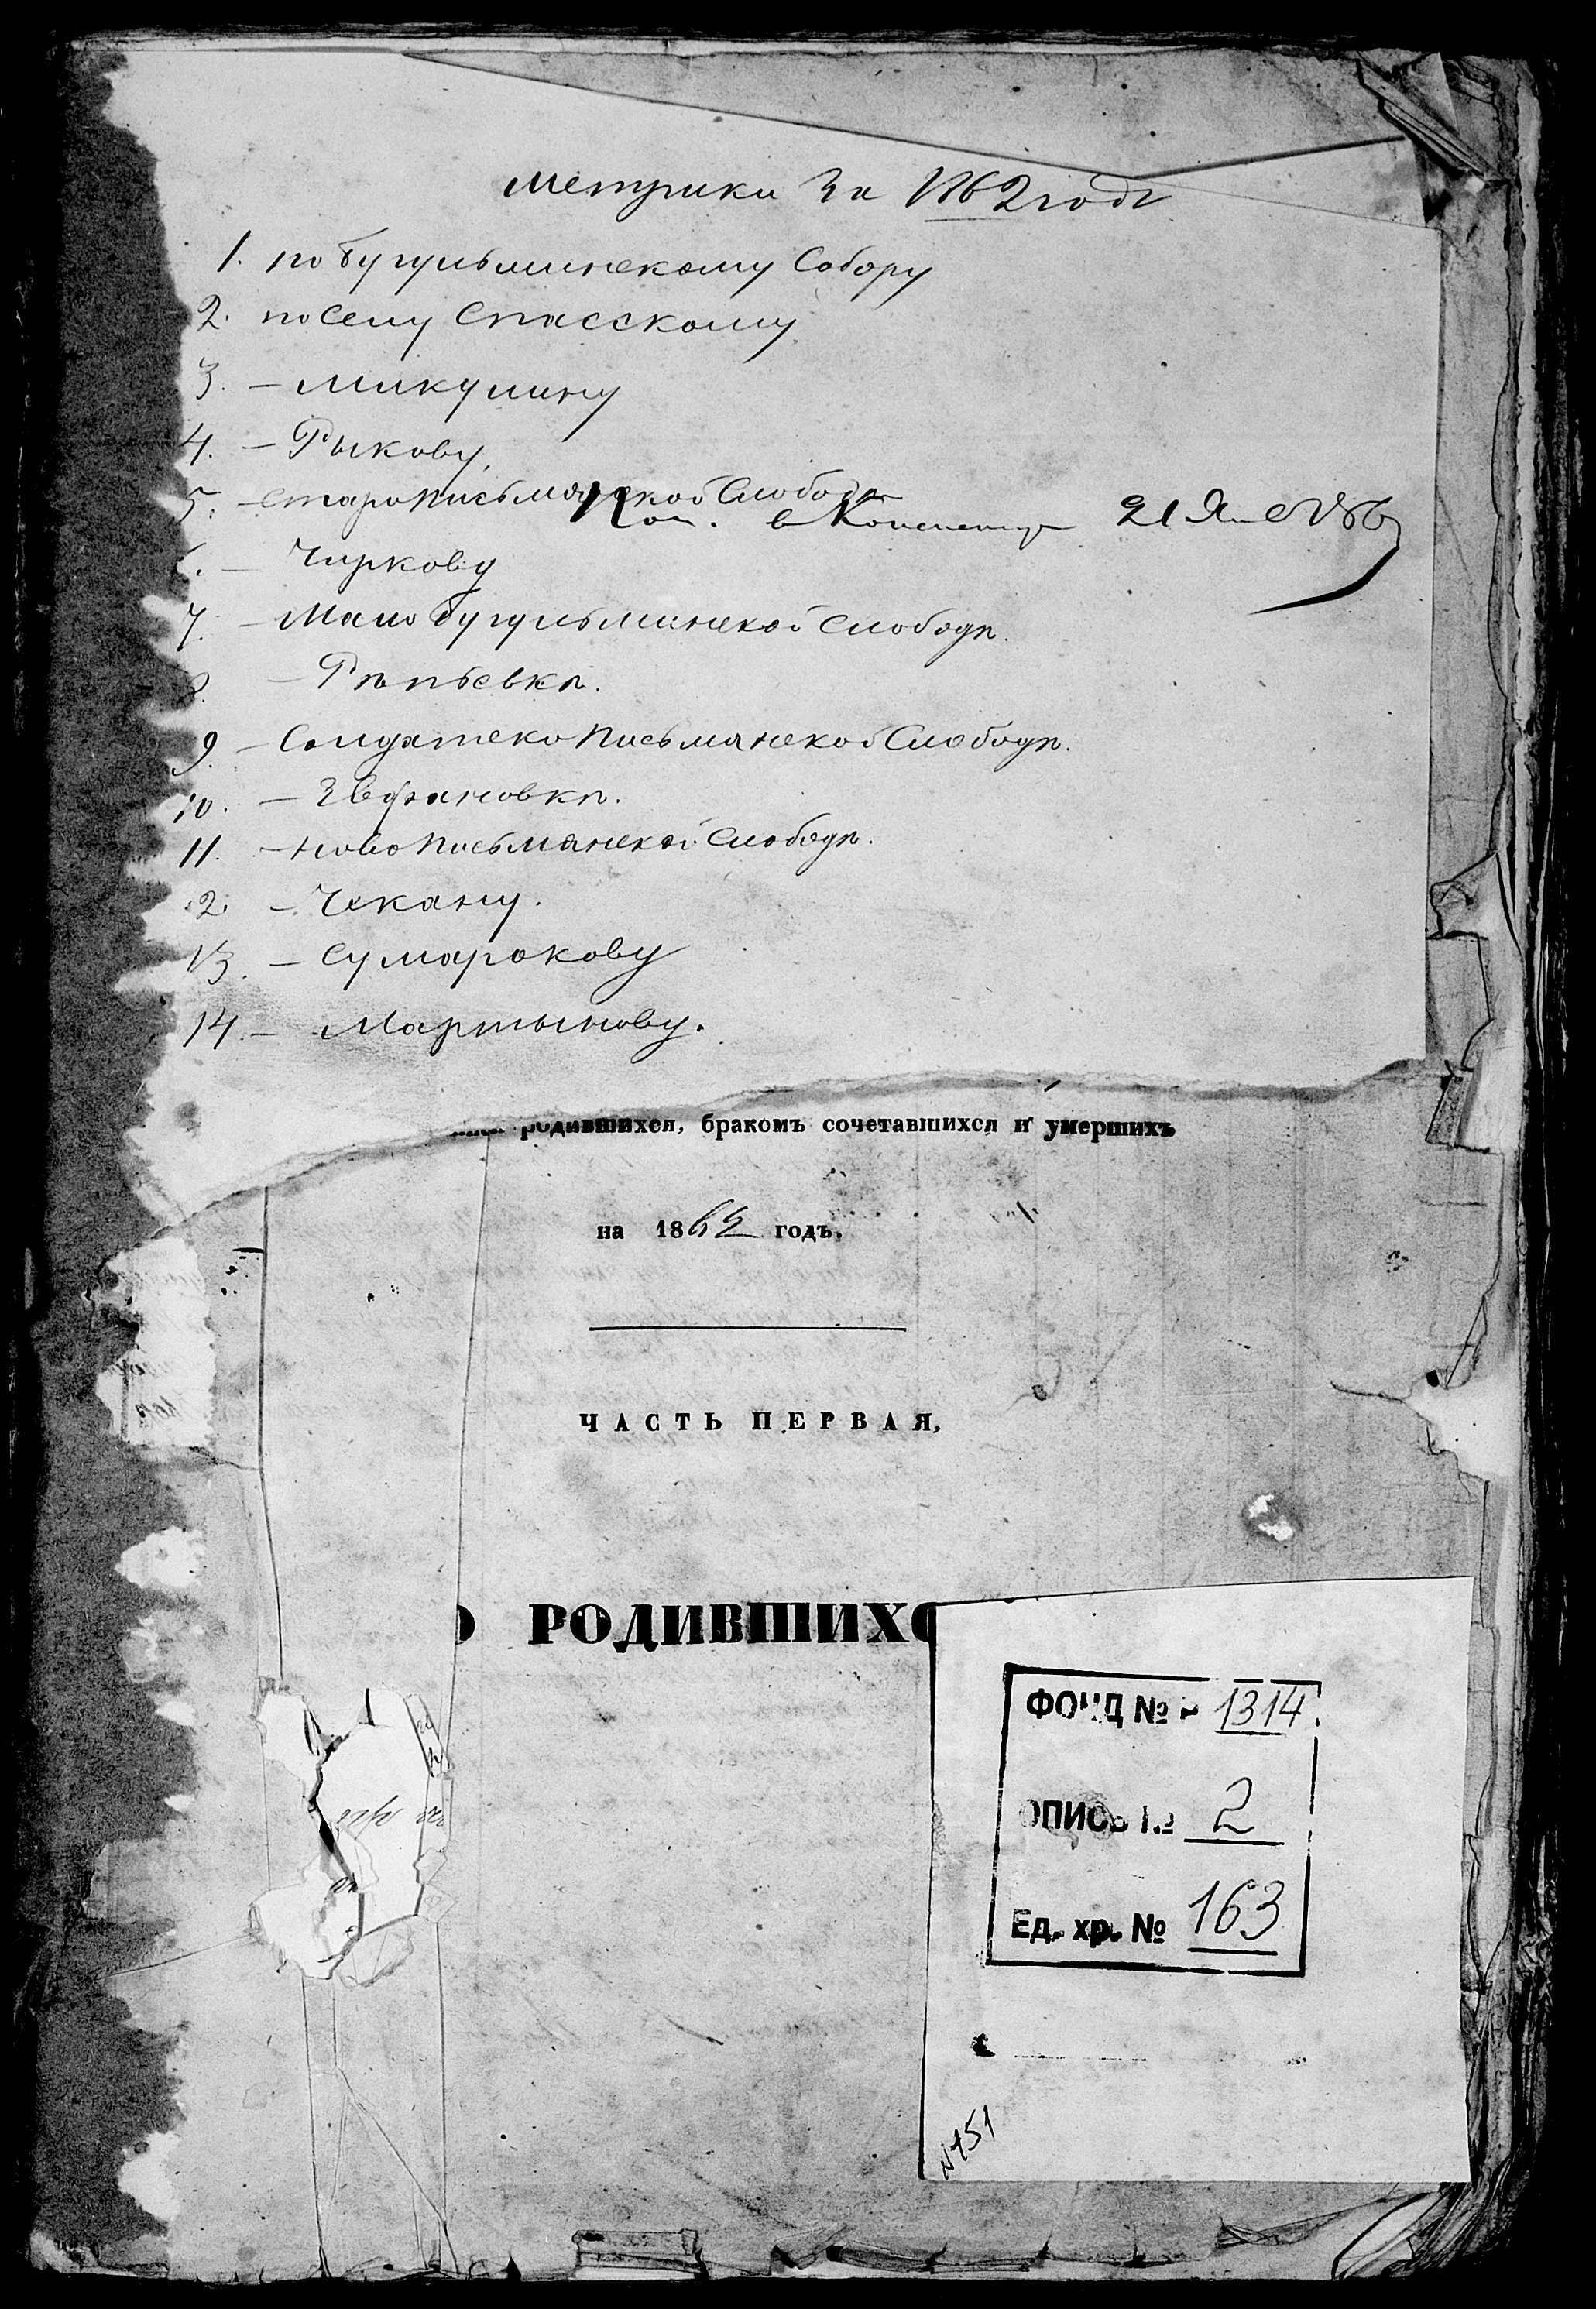 Метрики за 1862 годъ
1. по Бугульминскому Собору
2. по селу Спасскому
3. — Микулину
4. — Рыкову
5. — Старописьмянской Слободѣ
в 21
— Чиркову
7. — Мало Бугульминской Слободѣ.
— Рѣпьевкѣ.
9. — Солдатско Письмянской Слободѣ.
10. — Евфановкѣ.
11. — Ново Письмянской Слободѣ.
2. — Чекану.
13. — Сумарокову
14. — Мартынову.
родившихся, бракомъ сочетавшихся и умершихъ
на 1862 годъ.
ЧАСТЬ ПЕРВАЯ,
О РОДИВШИХС
ФОНД № 1314
ОПИСЬ № 2
Ед. хр. № 163
№151